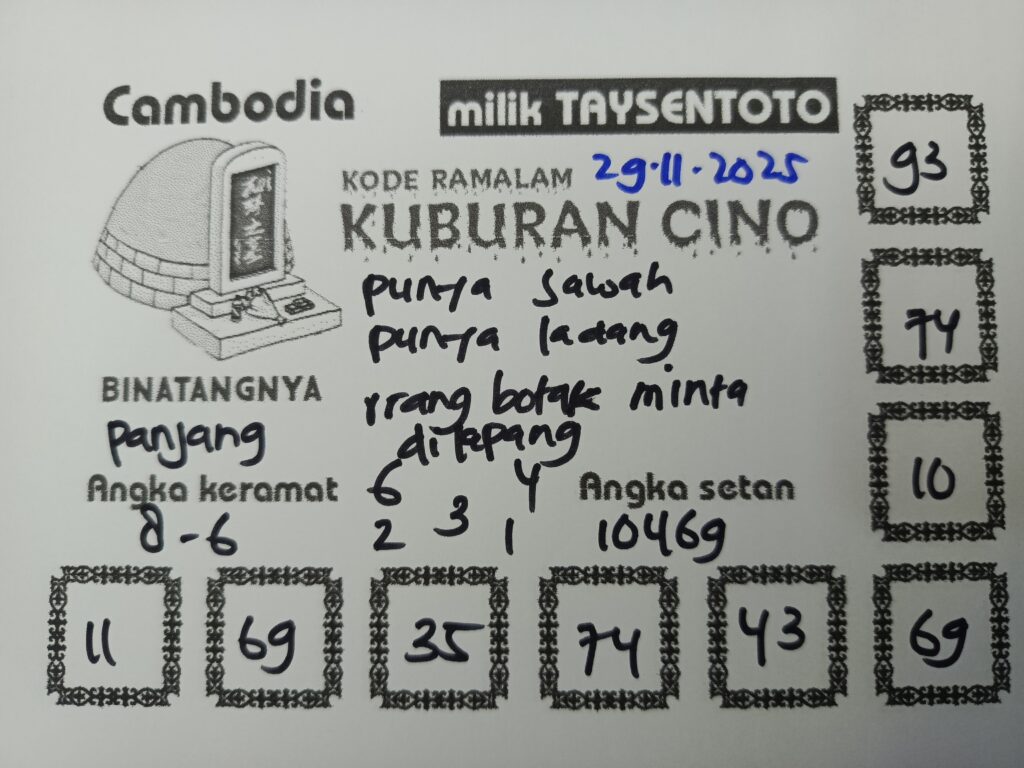 Cambodia
milik TAYSENTOTO
KODE RAMALAM 29.11.2025
KUBURAN CINO
punya sawah
punya ladang
rrang botak minta
ditapang
BINATANGNYA
panjang
Angka keramat
8-6
6 4
3
2 1
Angka setan
10469
93
74
10
11 69 35 74 43 69